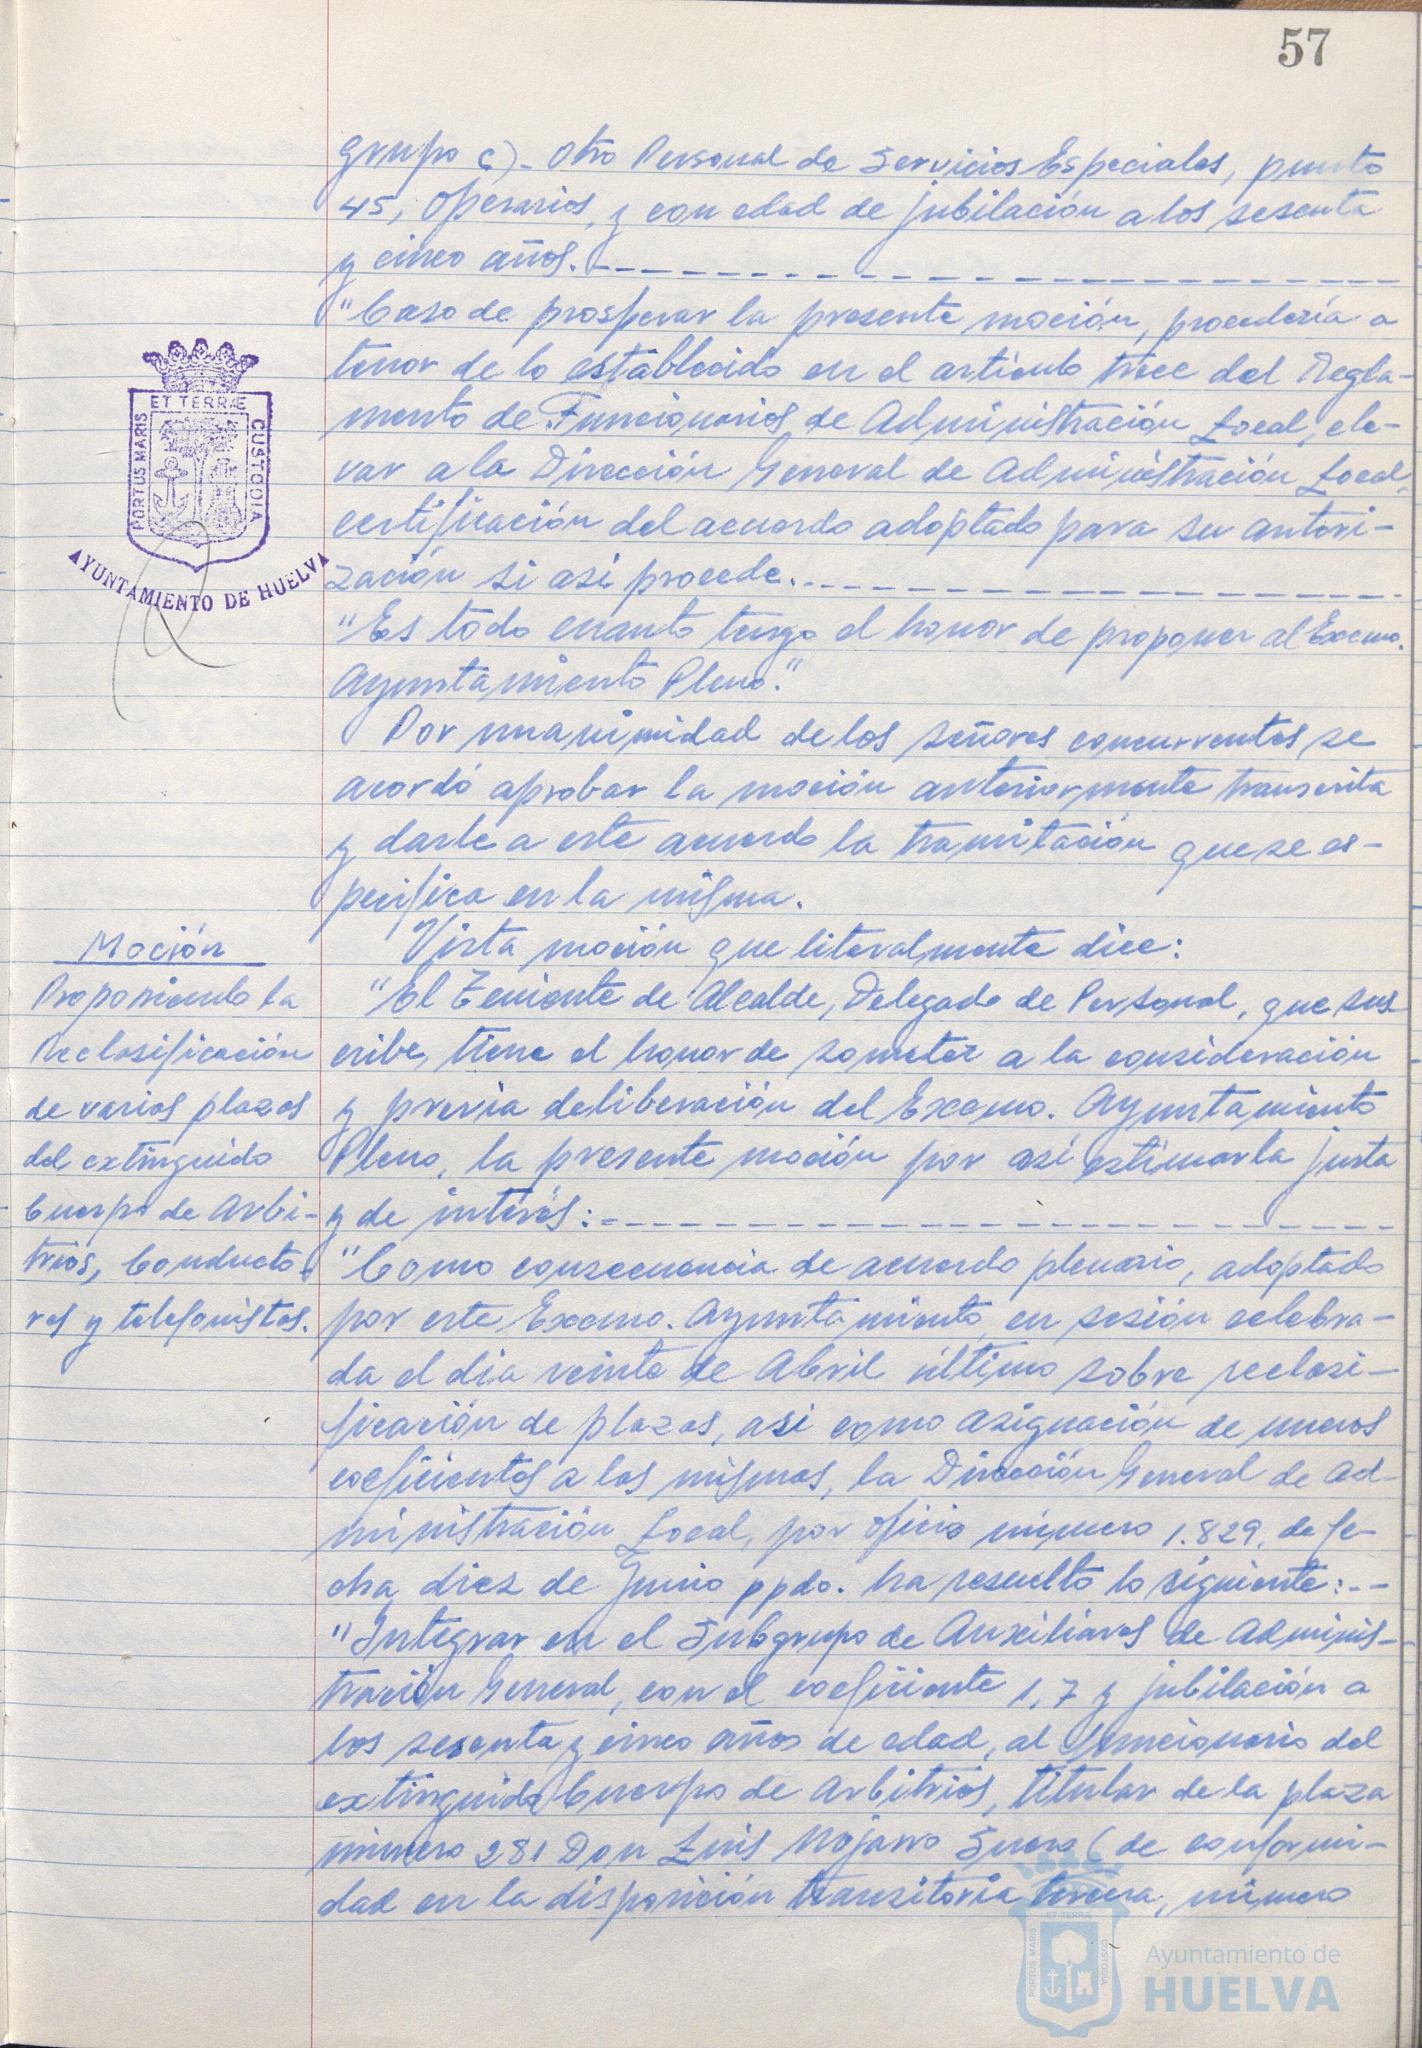 57
grupo c).- Otro Personal de Servicios Especiales, punto
45, Operarios, y con edad de jubilación a los sesenta
y cinco años.
"Caso de prosperar la presente moción, procedería a
tenor de lo establecido en el artículo trece del Regla-
mento de Funcionarios de Administración Local, ele-
var a la Dirección General de Administración Local,
certificación del acuerdo adoptado para su autori-
zación si así procede.
"Es todo cuanto tengo el honor de proponer al Excmo.
Ayuntamiento Pleno."
Por unanimidad de los señores concurrentes se
acordó aprobar la moción anteriormente transcrita
y darle a este acuerdo la tramitación que se es-
pecifica en la misma.
Vista moción que literalmente dice:
"El Teniente de Alcalde, Delegado de Personal, que sus-
cribe, tiene el honor de someter a la consideración
y previa deliberación del Excmo. Ayuntamiento
Pleno, la presente moción por así estimarla justa
y de interés:
"Como consecuencia de acuerdo plenario, adoptado
por este Excmo. Ayuntamiento, en sesión celebra-
da el dia veinte de Abril último sobre reclasi-
ficación de plazas, asi como asignación de nuevos
coeficientes a las mismas, la Dirección General de Ad-
ministración Local, por oficio número 1.829, de fe-
cha diez de Junio ppdo. ha resuelto lo siguiente:--
"Integrar en el Subgrupo de Auxiliares de Adminis-
tración General, con el coeficiente 1,7 y jubilación a
los sesenta y cinco años de edad, al funcionario del
extinguido Cuerpo de Arbitrios, titular de la plaza
número 281 Don Luis Mojarro Suero (de conformi-
dad en la disposición transitoria tercera, número
Moción
Proponiendo la
Reclasificación
de varias plazas
del extinguido
Cuerpo de Arbi-
trios, Conducto-
res y telefonistas.
ET TERRÆ
PORTUS MARIS
CUSTODIA
AYUNTAMIENTO DE HUELVA
ET TERRÆ
PORTUS MARIS
CUSTODIA
Ayuntamiento de
HUELVA